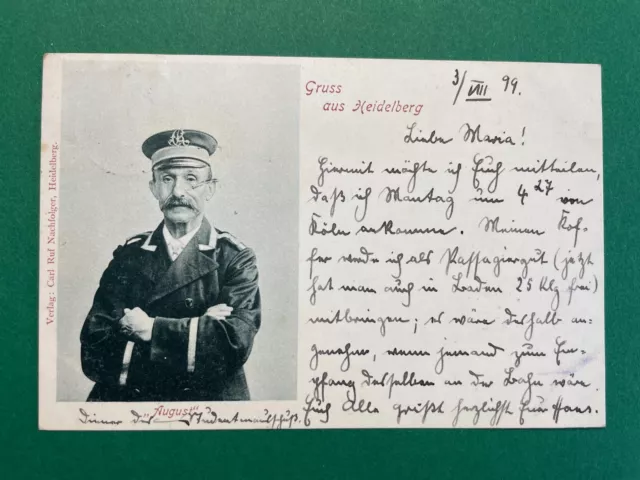 Gruss
aus Heidelberg
3/VIII 99.
Liebe Maria!
Hiermit möchte ich Euch mitteilen,
daß ich Montag um 4 27 von
Köln ankomme. Meinen Kof=
fer werde ich als Passagiergut (jetzt
hat man auch in Baden 25 Klg frei)
mitbringen; es wäre deshalb an=
genehm, wenn jemand zum Em=
pfang desselben an der Bahn wäre.
Euch Alle grüßt herzlichst Euer Hans.
"August"
Diener des Studentenausschuß.
Verlag: Carl Ruf Nachfolger, Heidelberg.